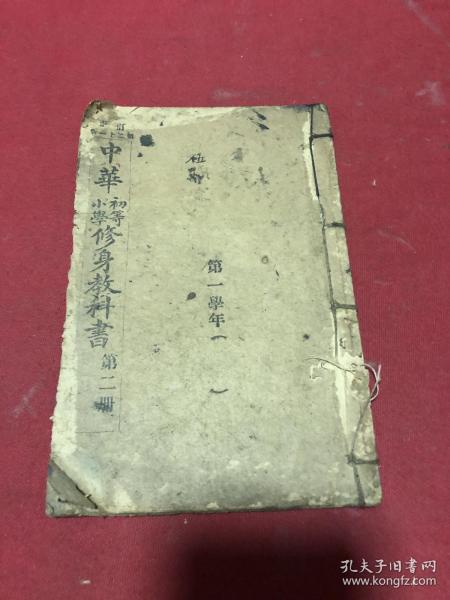 中華
初等
小學
修身教科書
第二冊
第一學年（ ）
孔夫子旧书网
www.kongfz.com